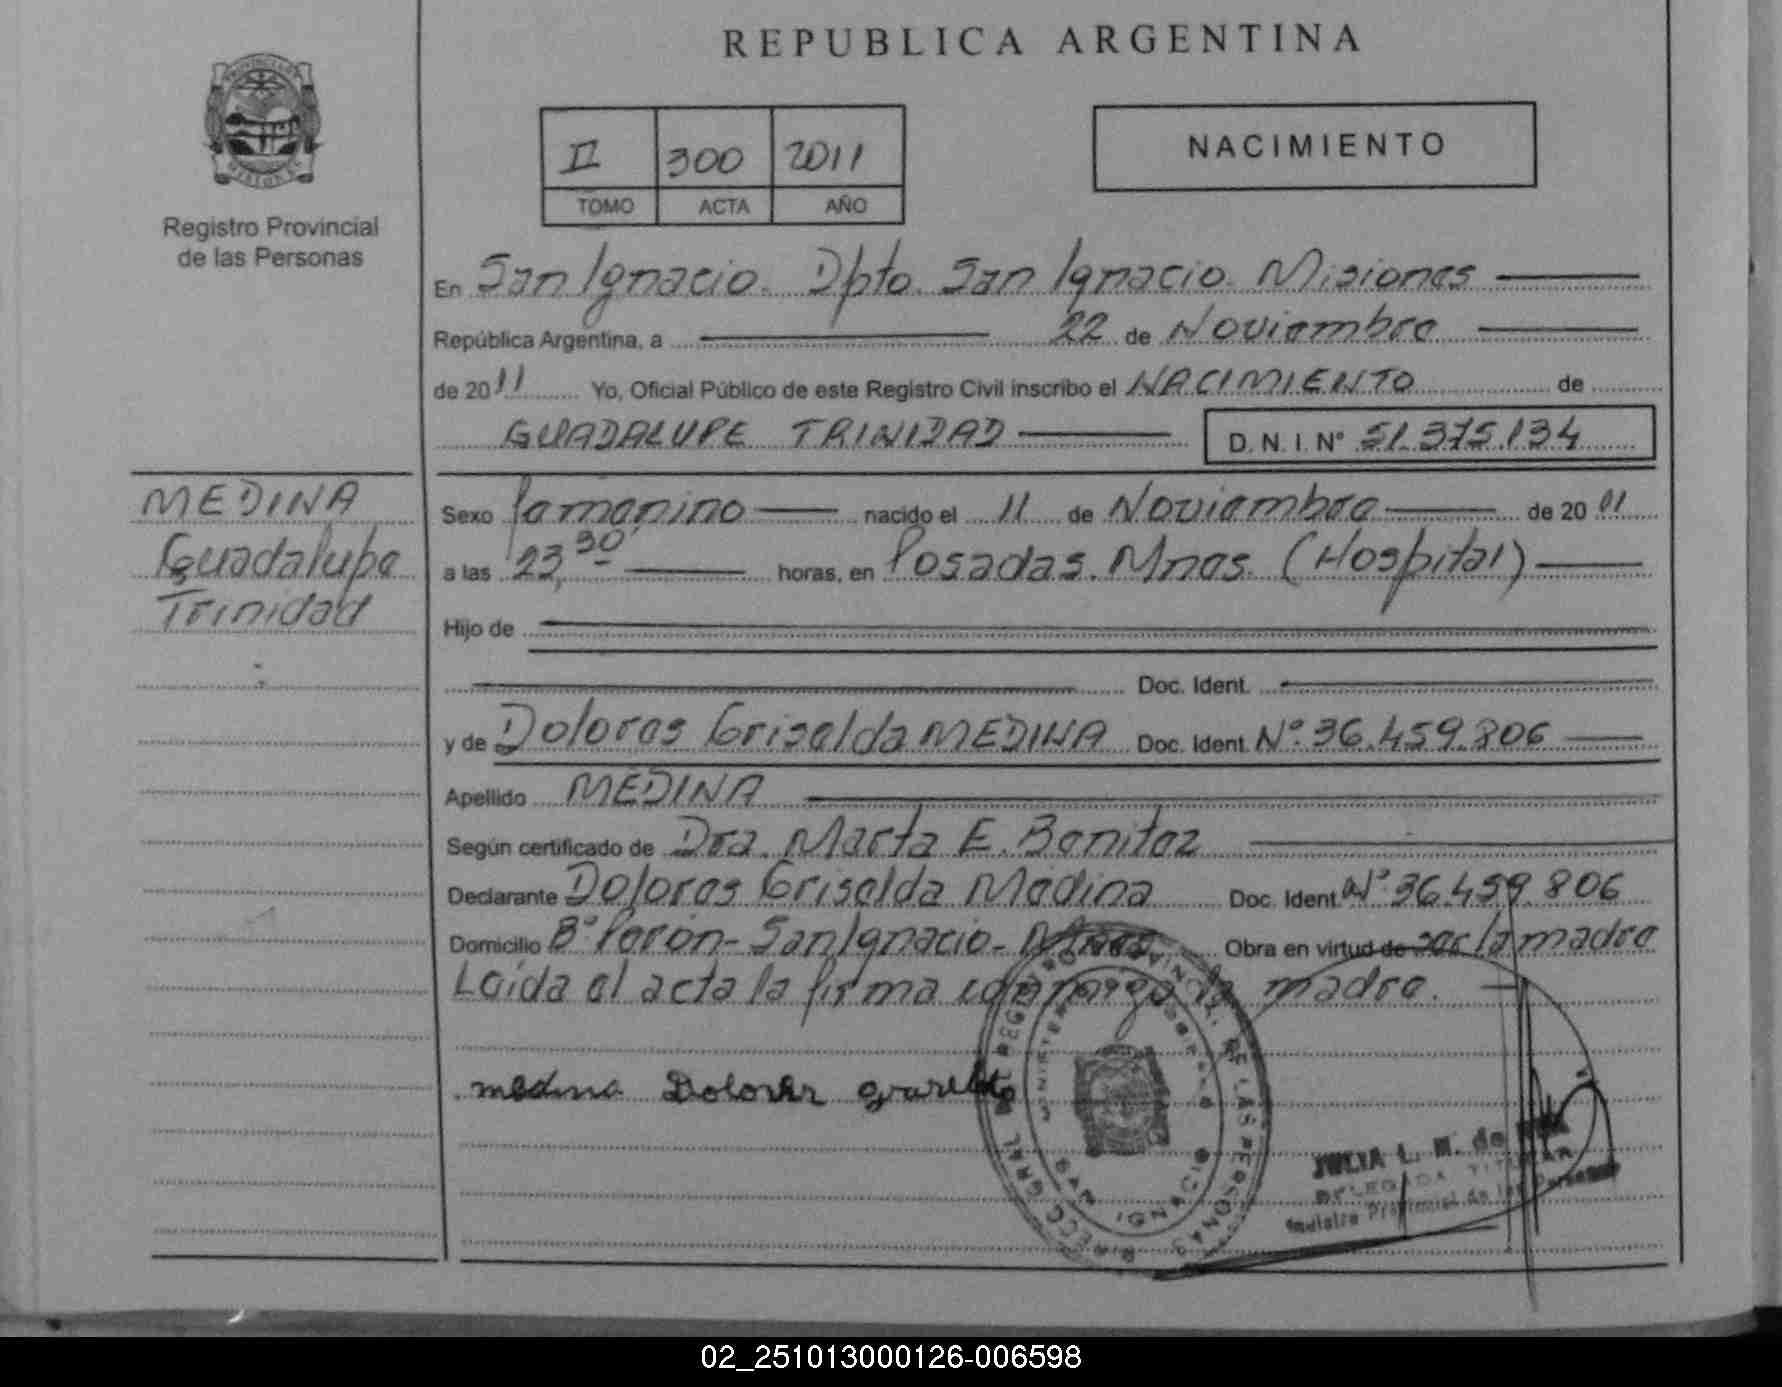 REPUBLICA ARGENTINA
II 300 2011
TOMO ACTA AÑO
NACIMIENTO
Registro Provincial
de las Personas
En San Ignacio. Dpto. San Ignacio. Misiones
República Argentina, a 22 de Noviembre
de 2011 Yo, Oficial Público de este Registro Civil inscribo el NACIMIENTO de
GUADALUPE TRINIDAD D.N.I. N° 51.375.134
MEDINA
Guadalupe
Trinidad
Sexo femenino nacido el 11 de Noviembre de 20 011
a las 23,30 horas, en Posadas. Mnes. (Hospital)
Hijo de
Doc. Ident.
y de Dolores Griselda MEDINA Doc. Ident. N°. 36.459.806
Apellido MEDINA
Según certificado de Dra. Marta E. Benitez
Declarante Dolores Griselda Medina Doc. Ident. N°. 36.459.806
Domicilio B° Perón - San Ignacio - Mnes Obra en virtud de ser la madre
Leída el acta la firma conmigo la madre.
medina Dolores
DIRECC. GRAL. DE REGISTRO PROVINCIAL DE LAS PERSONAS
JULIA L. M. de
DELEGADA TITULAR
Registro Provincial de las Personas
02_251013000126-006598